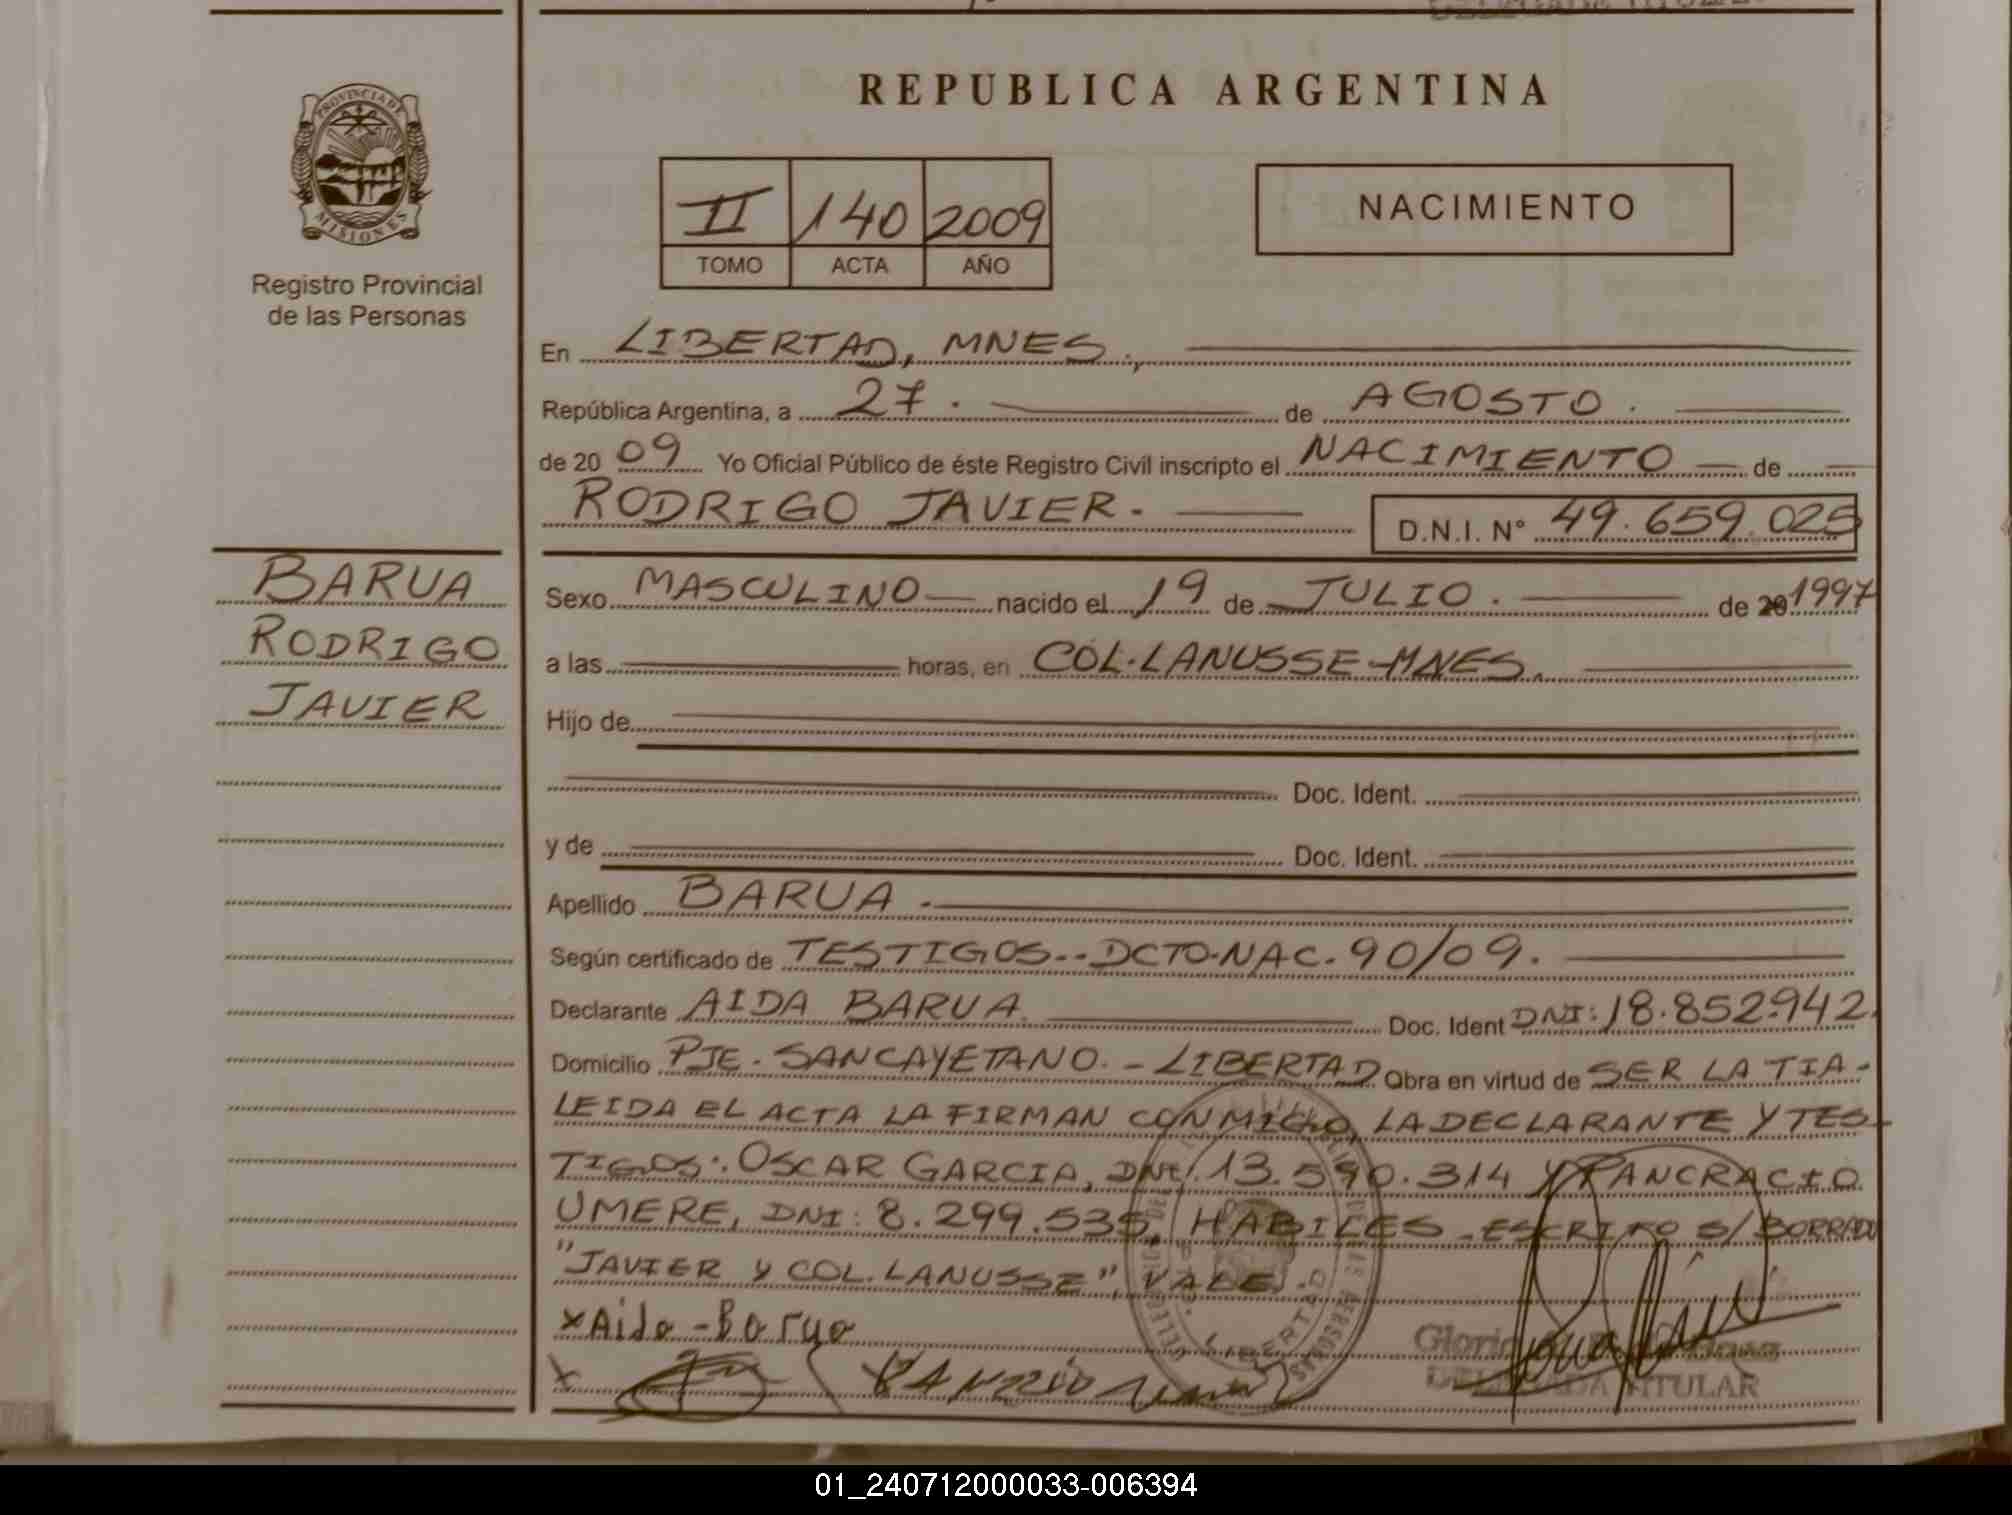 REPUBLICA ARGENTINA
PROVINCIA DE
MISIONES
Registro Provincial
de las Personas
II 140 2009
TOMO ACTA AÑO
NACIMIENTO
En LIBERTAD, MNES.,
República Argentina, a 27. de AGOSTO.
de 2009 Yo Oficial Público de éste Registro Civil inscripto el NACIMIENTO de
RODRIGO JAVIER.- D.N.I. Nº 49.659.025
BARUA
RODRIGO
JAVIER
Sexo MASCULINO nacido el 19 de JULIO. de 20 1997
a las horas, en COL.LANUSSE-MNES.
Hijo de
Doc. Ident.
y de Doc. Ident.
Apellido BARUA.-
Según certificado de TESTIGOS.-DCTO.NAC.90/09.
Declarante AIDA BARUA. Doc. Ident DNI: 18.852.942.
Domicilio PJE. SAN CAYETANO.- LIBERTAD Obra en virtud de SER LA TIA-
LEIDA EL ACTA LA FIRMAN CONMIGO, LA DECLARANTE Y TES-
TIGOS: OSCAR GARCIA, DNI: 13.590.314 Y PANCRACIO
UMERE, DNI: 8.299.535, HABILES.-ESCRITO S/BORRADO
"JAVIER Y COL.LANUSSE", VALE.-
x Aida - Barua
LIBERTAD
DELEGADA TITULAR
01_240712000033-006394